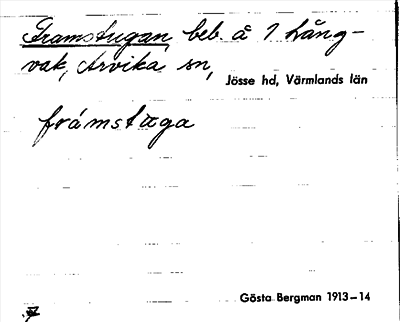 Framstugan, beb. å 1 Lång-
vak, Arvika sn,
Jösse hd, Värmlands län
framstuga
Gösta Bergman 1913–14